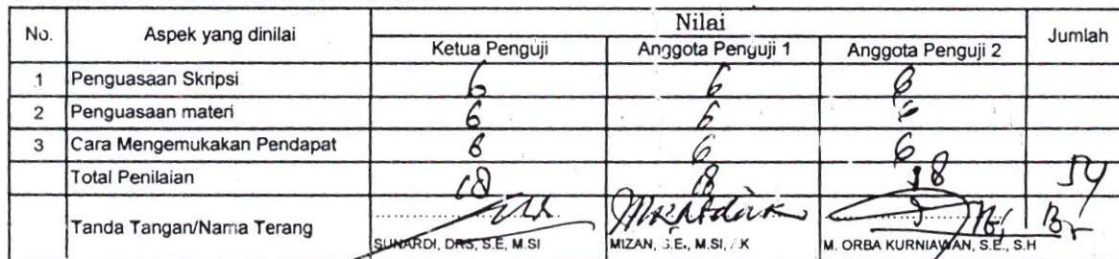 No. Aspek yang dinilai Nilai Jumlah
Ketua Penguji Anggota Penguji 1 Anggota Penguji 2
1 Penguasaan Skripsi 6 6 6
2 Penguasaan materi 6 6 6
3 Cara Mengemukakan Pendapat 6 6 6
Total Penilaian 18 18 18 54
Tanda Tangan/Nama Terang
SUNARDI, DRS, S.E, M.SI MIZAN, S.E., M.SI, M. ORBA KURNIAWAN, S.E., S.H